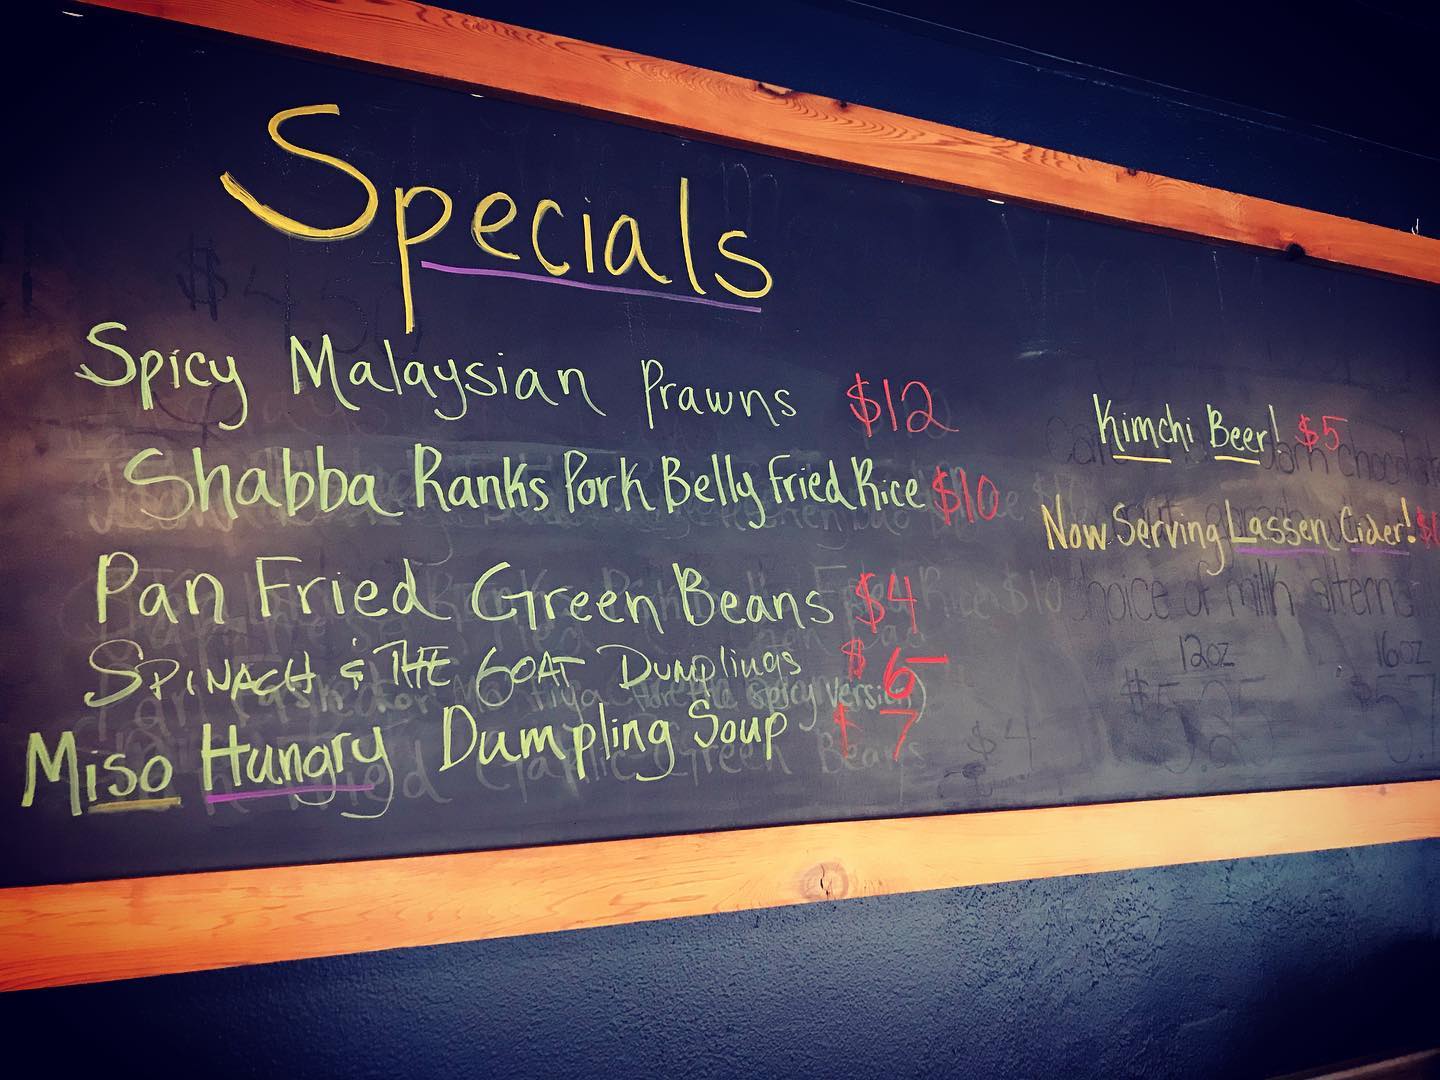 Specials
Spicy Malaysian Prawns $12
Shabba Ranks Pork Belly Fried Rice $10
Pan Fried Green Beans $4
SPINACH & THE GOAT DUMPLINGS $6
Miso Hungry Dumpling Soup $7
Kimchi Beer! $5
Now Serving Lassen Cider!
choice of milk
12oz 16oz
$5.25
$4